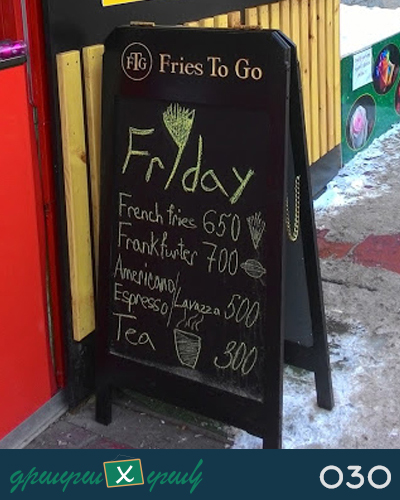 FTG Fries To Go
Friday
French fries 650
Frankfurter 700
Americano/
Espresso/Lavazza 500
Tea 300
գրառում X գրամ
030